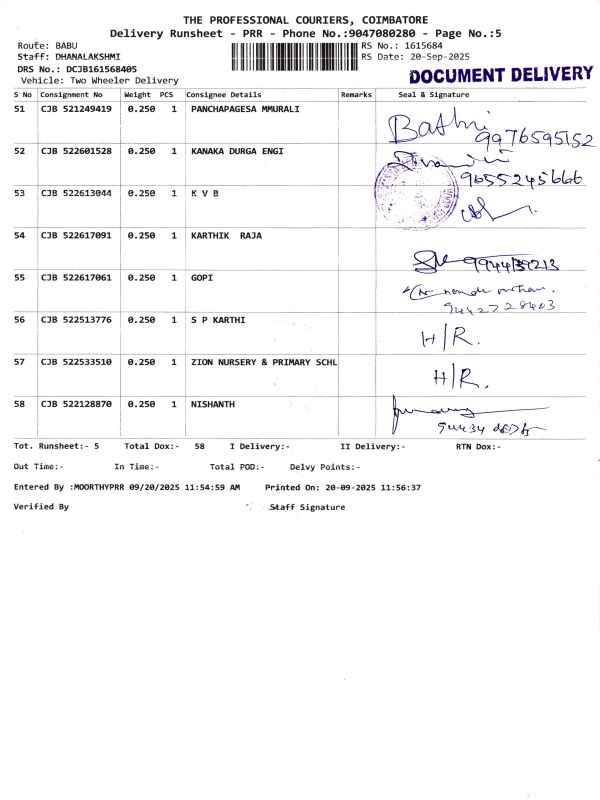 THE PROFESSIONAL COURIERS, COIMBATORE
Delivery Runsheet - PRR - Phone No.:9047080280 - Page No.:5
Route: BABU RS No.: 1615684
Staff: DHANALAKSHMI RS Date: 20-Sep-2025
DRS No.: DCJB161568405
Vehicle: Two Wheeler Delivery DOCUMENT DELIVERY
S No Consignment No Weight PCS Consignee Details Remarks Seal & Signature
51 CJB 521249419 0.250 1 PANCHAPAGESA MMURALI
9976595152
52 CJB 522601528 0.250 1 KANAKA DURGA ENGI
9655245666
53 CJB 522613044 0.250 1 K V B
54 CJB 522617091 0.250 1 KARTHIK RAJA
55 CJB 522617061 0.250 1 GOPI
9442728403
56 CJB 522513776 0.250 1 S P KARTHI H/R.
57 CJB 522533510 0.250 1 ZION NURSERY & PRIMARY SCHL H/R.
58 CJB 522128870 0.250 1 NISHANTH
Tot. Runsheet:- 5 Total Dox:- 58 I Delivery:- II Delivery:- RTN Dox:-
Out Time:- In Time:- Total POD:- Delvy Points:-
Entered By :MOORTHYPRR 09/20/2025 11:54:59 AM Printed On: 20-09-2025 11:56:37
Verified By Staff Signature